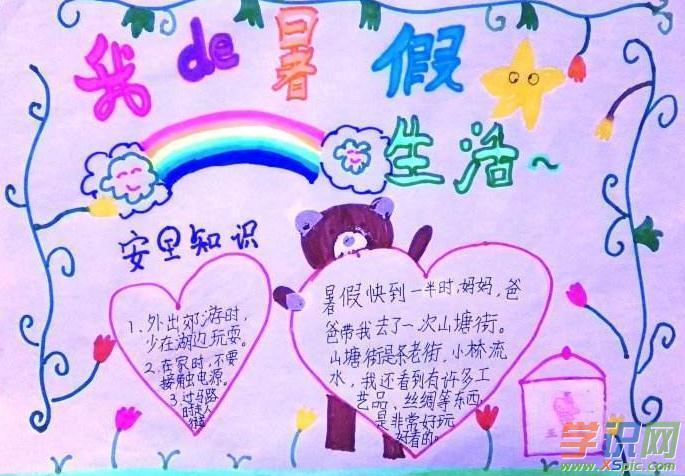 我de暑假
生活~
安里知识
1.外出郊游时,
少在湖边玩耍。
2.在家时,不要
接触电源。
3.过马路
时走人
行道
暑假快到一半时,妈妈,爸
爸带我去了一次山塘街。
山塘街是条老街,小林流
水,我还看到有许多工
艺品、丝绸等东西,
是非常好玩
好看的。
学识网
www.XSpic.com